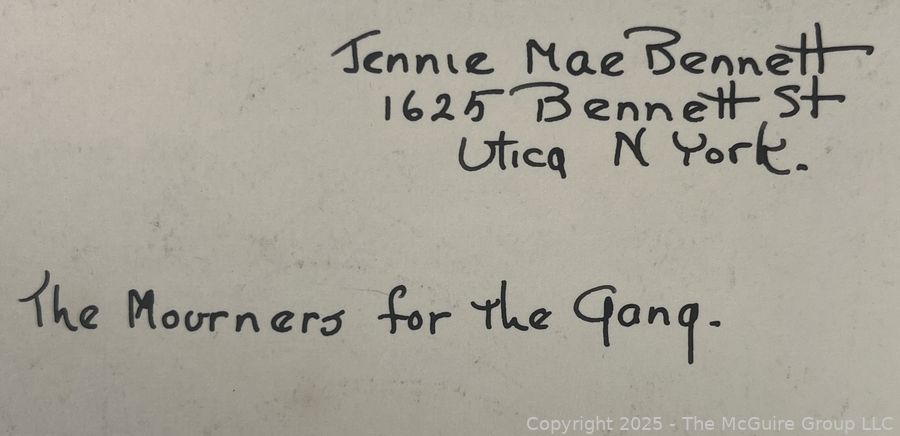 Jennie Mae Bennett
1625 Bennett St
Utica N York.
The Mourners for the Gang.
Copyright 2025 - The McGuire Group LLC